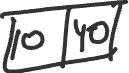 10 40